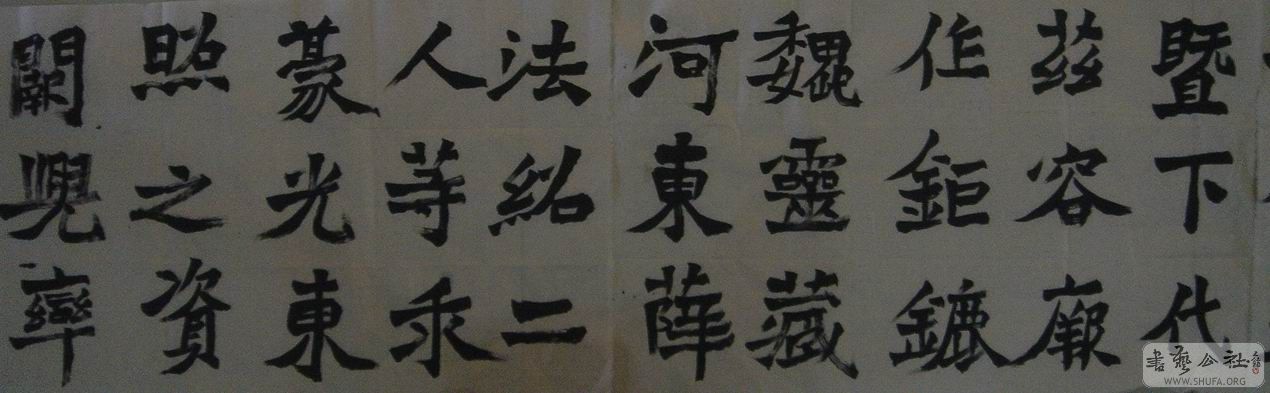 暨下代
茲容厥
作鉅鏕
魏靈藏
河東薛
法紹二
人等求
豪光東
照之資
闕兜率
書藝公社
WWW.SHUFA.ORG